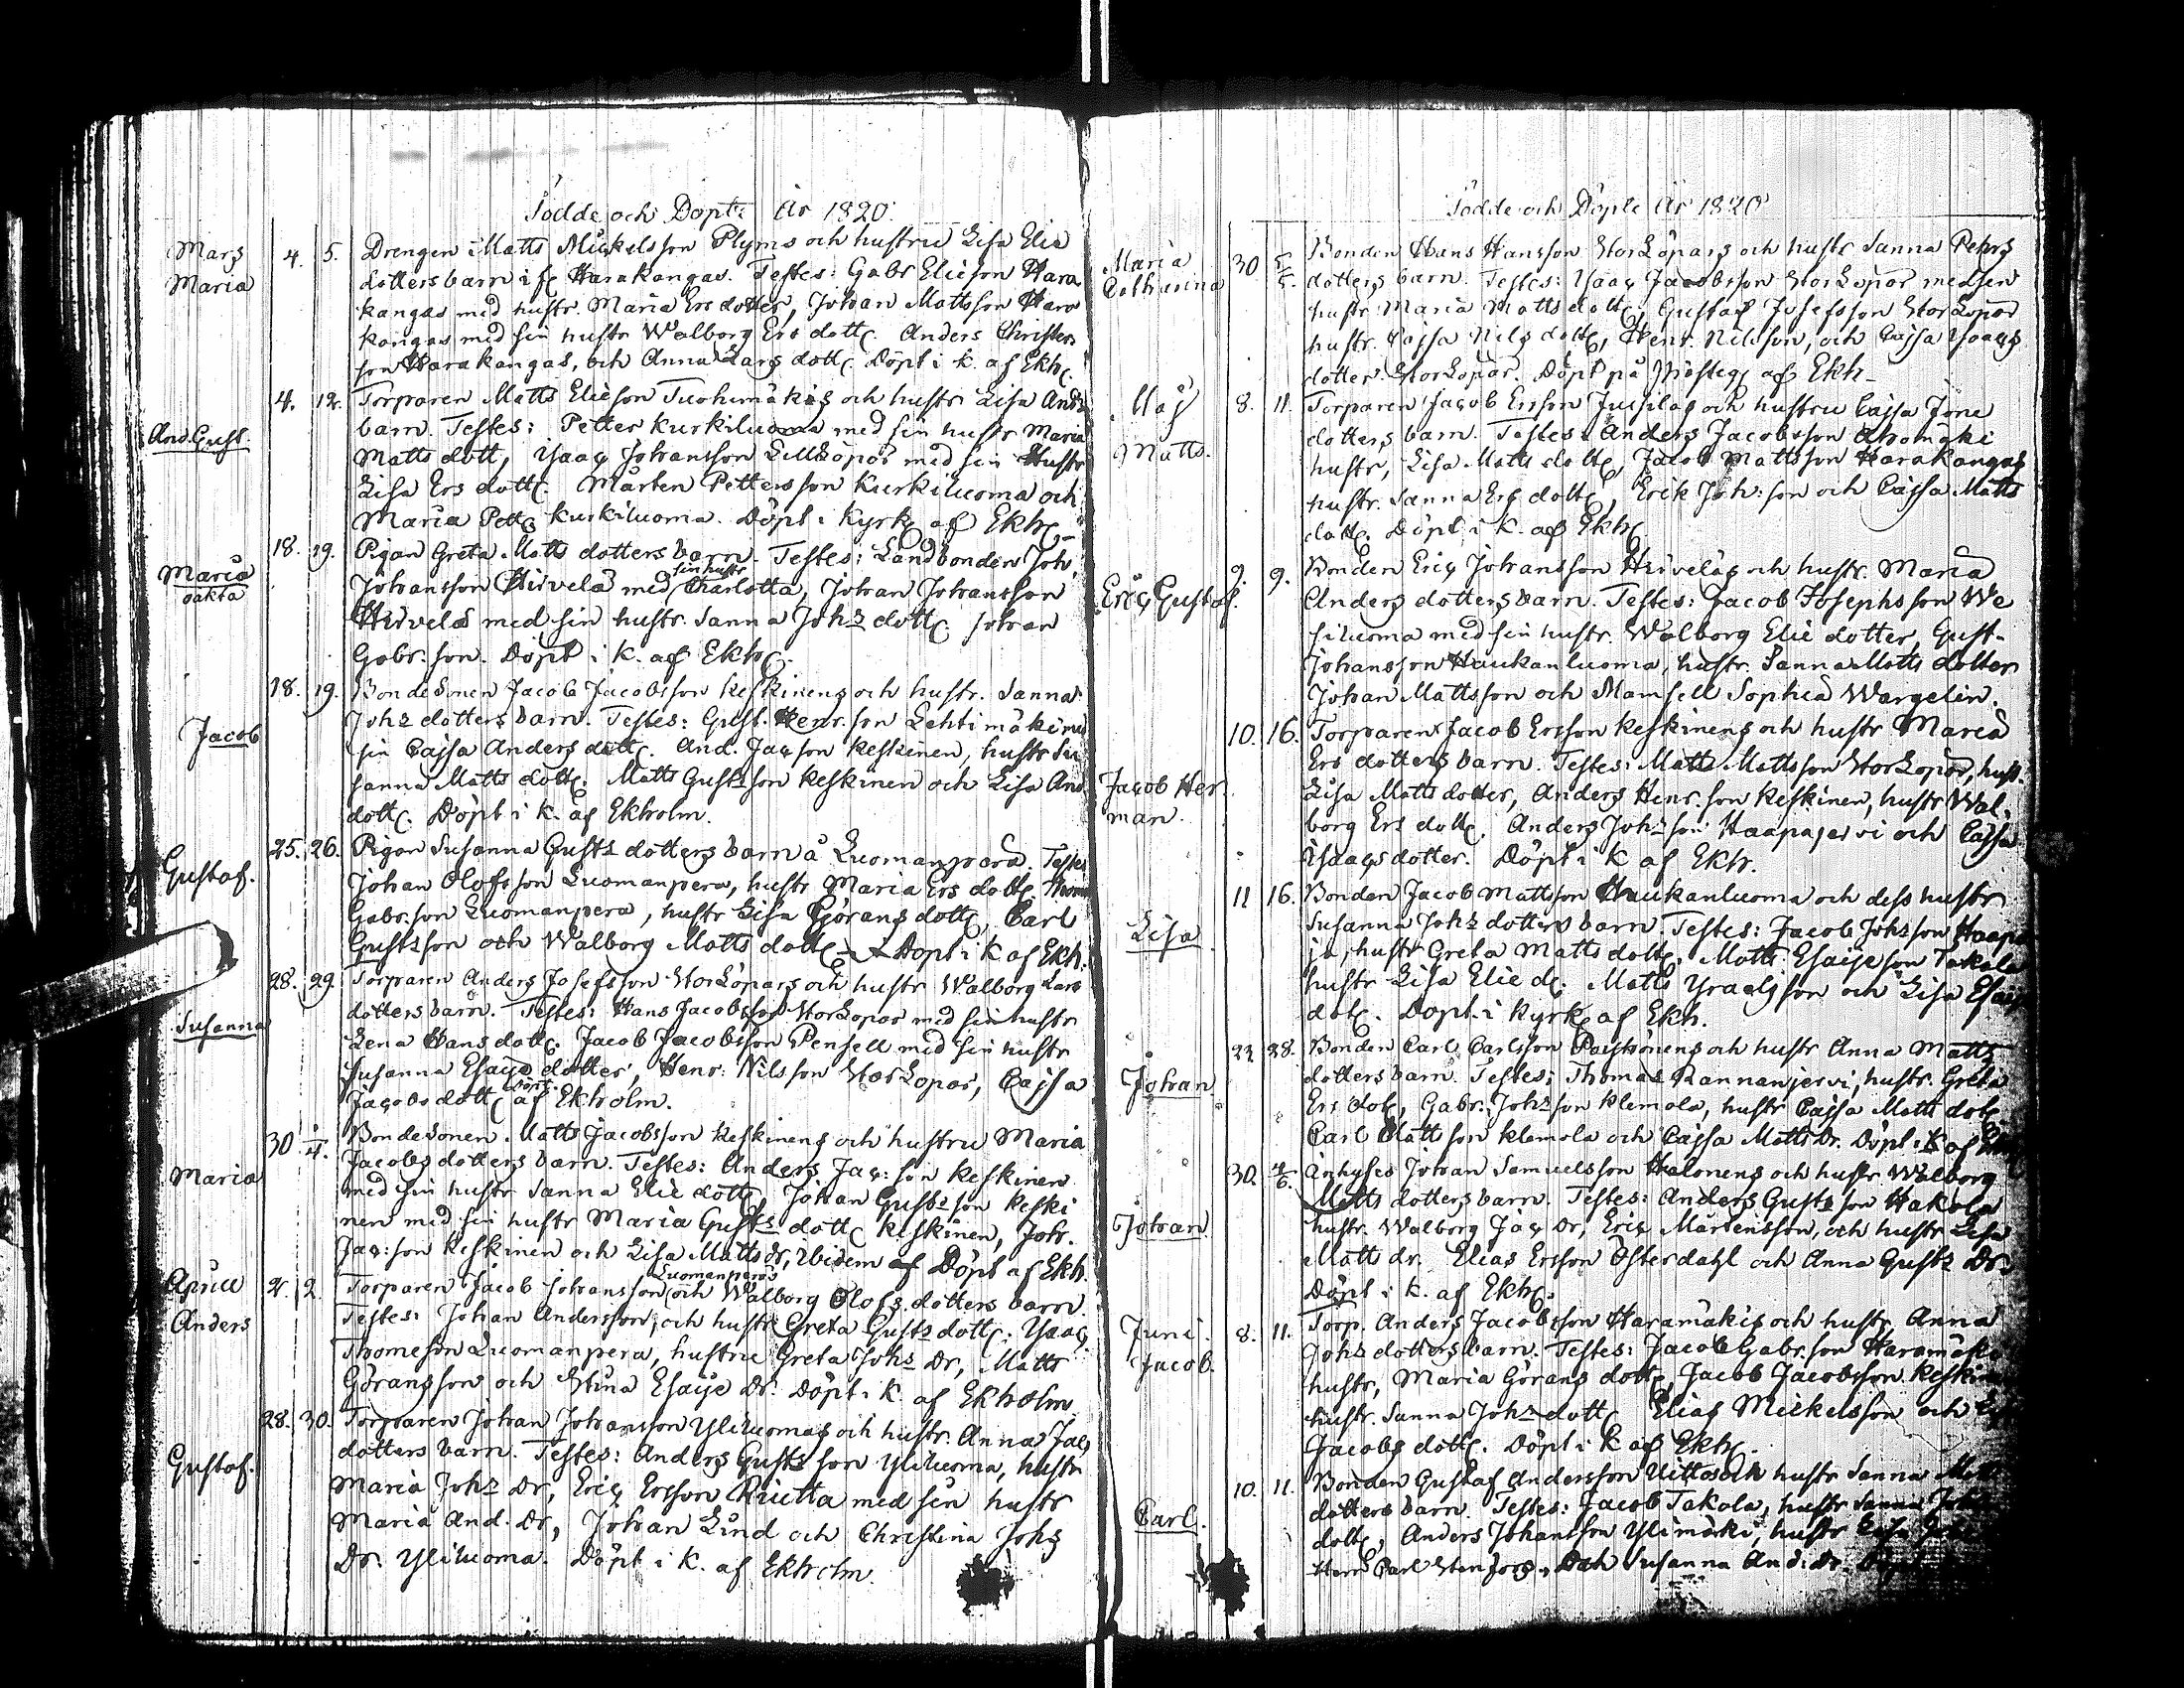 Födde och Döpte År 1820.
Mars 4. 5. Drengen Matts Mickelsson Plyms och hustru Lisa Elie
Maria dotters barn i fr Harakangas. Testes: Gabr Elieson Hara
kangas med hustr. Maria Ers dotter, Johan Mattsson Hara
kangas med sin hustr Walborg Ers dottr. Anders Christers
son Harakangas, och Anna Lars dottr. Döpt i k. af Ekh.
4. 12. Torparen Matts Elieson Tuohimäkis och hustr Lisa Ands
And. Gust. barn. Testes: Petter Kurkiluoma med sin hustr Maria
Matts dott, Isaac Johansson Lillköpar med sin Hustr
Lisa Ers dottr. Mårten Pettersson Kurkiluoma och
Maria Pettr Kurkiluoma. Döpt i kyrk af Ekh.
18. 19. Pigan Greta Matts dotters barn. Testes: Landbonden Joh.
sin hustr
Maria Johansson Hirvelä med Charlotta, Johan Johansson
oäkta Hirvelä med sin hustr. Sanna Johs dottr Johan
Gabr. son. Döpt i k. af Ekh.
18. 19. Bondesonen Jacob Jacobsson Keskinens och hustr. Sanna
Jacob Johs dotters barn. Testes: Gust. Henr. son Lehtimäki med
sin Cajsa Anders dottr. And. Jac son Keskinen, hustr Su
sanna Matts dottr. Matts Gustsson Keskinen och Lisa And.
dottr. Döpt i k. af Ekholm.
25. 26. Pigan Susanna Gusts dotters barn å Luomanperä. Testes
Gustaf. Johan Olofsson Luomanpera, hustr Maria Ers dottr. Thom
Gabr. son Luomanpera, hustr Lisa Görans dottr, Carl
Gustsson och Walborg Matts dottr Döpt i k af Ekh.
28. 29 Torparen Anders Josefsson Storköpars och hustr Walborg Lars
Susanna dotters barn. Testes: Hans Jacobsson Storköpar med sin hustr
Lena Hans dottr. Jacob Jacobsson Pensell med sin hustr
Susanna Esaye dotter, Henr: Nilsson Storkopar, Cajsa
Döpt
Jacobs dottr af Ekholm.
30 1/4. Bondesonen Matts Jacobsson Keskinens och hustru Maria
Maria Jacobs dotters barn. Testes: Anders Jac: son Keskinen
med sin hustr Sanna Elie dottr, Johan Gusts son Keski
nen med sin hustr Maria Gusts dottr Keskinen, Joh.
Jac: son Keskinen och Lisa Matts dr, ibidem af Döpt af Ekh.
Luomanperäs
April 2. 2. Torparen Jacob Johansson och Walborg Olofs dotters barn.
Anders Testes: Johan Andersson, och hustr Greta Gusts dottr. Isaac
Thomeson Luomanpera, hustru Greta Johs Dr, Matts
Göransson och Stina Esaye Dr. Döpt i k. af Ekholm
28. 30. Torparen Johan Johansson Yliluomas och hustr. Anna Jacs
Gustaf. dotters barn. Testes: Anders Gusts son Yliluoma, hustr
Maria Johs Dr, Eric Ersson Riietta med sin hustr
Maria And. Dr, Johan Lind och Christina Johs
Dr. Yliluoma. Döpt i k. af Ekholm.
Födde och Döpte År 1820
Maria 30 5/5. Bonden Hans Hansson Storköpars och hustr Sanna Pehrs
Catharina dotters barn. Testes: Isaac Jacobsson Storköpar med sin
hustr. Maria Matts dottr, Gustaf Josefsson Storköpar
hustr. Cajsa Nils dottr, Henr. Nilsson, och Cajsa Isaacs
dotter. Storköpar. Döpt på af Ekh.
Maj 8. 11. Torparen Jacob Ersson Jussilas och hustru Cajsa Jöns
Matts. dotters barn. Testes: Anders Jacobsson Ahomäki
hustr, Lisa Matts dottr, Jacob Mattsson Harakangas
hustr. Sanna Ers dottr, Erik Joh: son och Cajsa Matts
dottr. Döpt i k. af Ekh.
9. 9. Bonden Eric Johansson Hirveläs och hustr. Maria
Eric Gustaf. Anders dotters barn. Testes: Jacob Josephsson We
siluoma med sin hustr. Walborg Elie dotter, Gust.
Johansson Haukanluoma, hustr. Sanna Matts dotter
Johan Mattsson och Mamsell Sophia Wargelin.
10. 16. Torparen Jacob Ersson Keskinens och hustr Maria
Ers dotters barn. Testes: Matts Mattsson Storköpar, hust.
Jacob Her Lisa Matts dotter, Anders Henr. son Keskinen, hustr Wal
man. borg Ers dottr. Anders Johs son Haapajervi och Cajsa
Isaacs dotter. Döpt i k af Ekh.
11 16. Bonden Jacob Mattsson Haukanluoma och dess hustr
Lisa Susanna Johs dotters barn. Testes: Jacob Johsson Haapa
ja, hustr Greta Matts dottr, Matts Esaiesson Takala
hustr Lisa Elie dr. Matts Israelsson och Lisa Esaie
dotr. Döpt i kyrk af Ekh.
22. 28. Bonden Carl Carlsson Pastranens och hustr Anna Matts
Johan dotters barn. Testes: Thomas Rannanjervi, hustr. Greta
Ers dotr, Gabr. Johs son Klemola, hustr Cajsa Matts dotr
Carl Matts son Klemola och Cajsa Matts Dr. Döpt i k af Ekh
30. 4/6. Inhyses Johan Samuelsson Halonens och hustr Walborg
Matts dotters barn. Testes: Anders Gusts son Hakola
Johan hustr. Walborg Jac Dr, Eric Mårtensson, och hustr Lisa
Matts dr. Elias Ersson Österdahl och Anna Gusts Dr.
Döpt i k. af Ekh.
Juni. 8. 11. Torp. Anders Jacobsson Haramäkis och hustr. Anna
Jacob. Johs dotters barn. Testes: Jacob Gabr. son Haramäki
hustr, Maria Görans dottr, Jacob Jacobsson Keskinen
hustr. Sanna Johs dottr Elias Mickelsson och
Jacobs dottr. Döpt i k af Ekh.
10. 11. Bonden Gustaf Andersson Uitto och hustr Sanna Matts
Carl. dotters barn. Testes: Jacob Takala, hustr Sanna
dottr, Anders Johansson Ylimäki, hustr Lisa
Herr Carl Stenfors, och Susanna And: Dr.